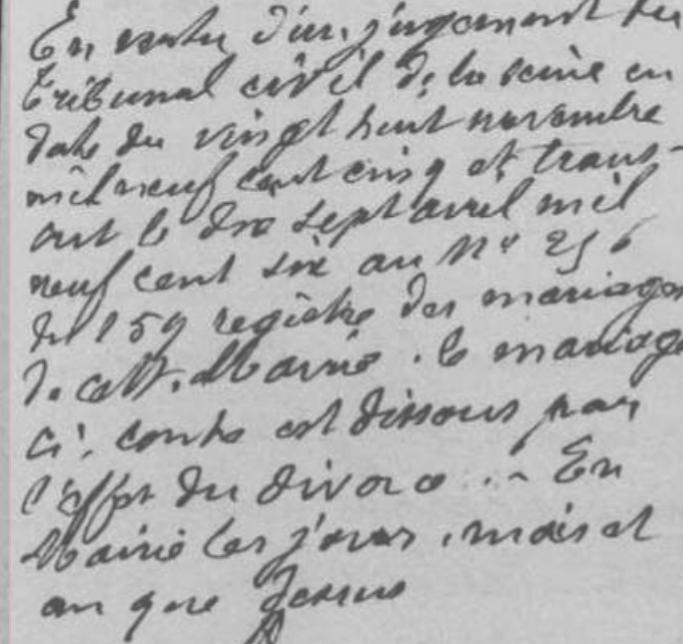 En vertu d'un jugement du
Tribunal civil de la Seine en
date du vingt huit novembre
mil neuf cent cinq et trans-
crit le dix sept avril mil
neuf cent six au N° 256
du 159 registre des mariages
de cette Mairie. le mariage
ci-contre est dissous par
l'effet du divorce. - En
Mairie les jours, mois et
an que dessus